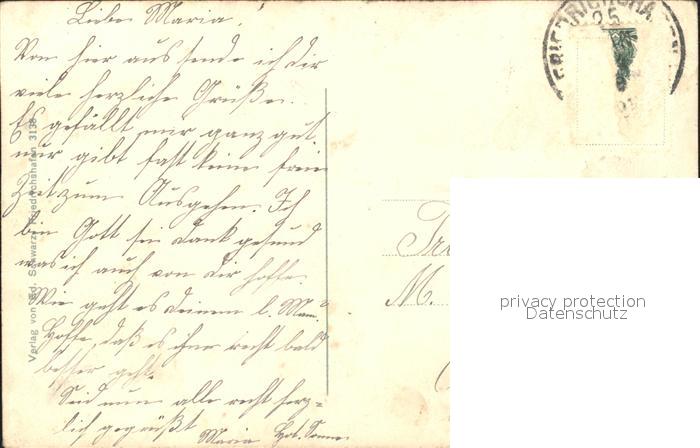 Liebe Maria!
Von hier aus sende ich dir
viele herzliche Grüße.
Es gefällt mir ganz gut
nur gibt fast keine freie
Zeit zum Ausgehen. Ich
bin Gott sei Dank gesund
was ich auch von dir hoffe.
Wie geht es deinem l. Mann
Hoffe, daß es ihm recht bald
besser geht.
Seid nun alle recht herz=
lich gegrüßt
Maria
Verlag von Ed. Schwarz, Friedrichshafen 3138
FRIEDRICHSHAFEN
25
M.
privacy protection
Datenschutz